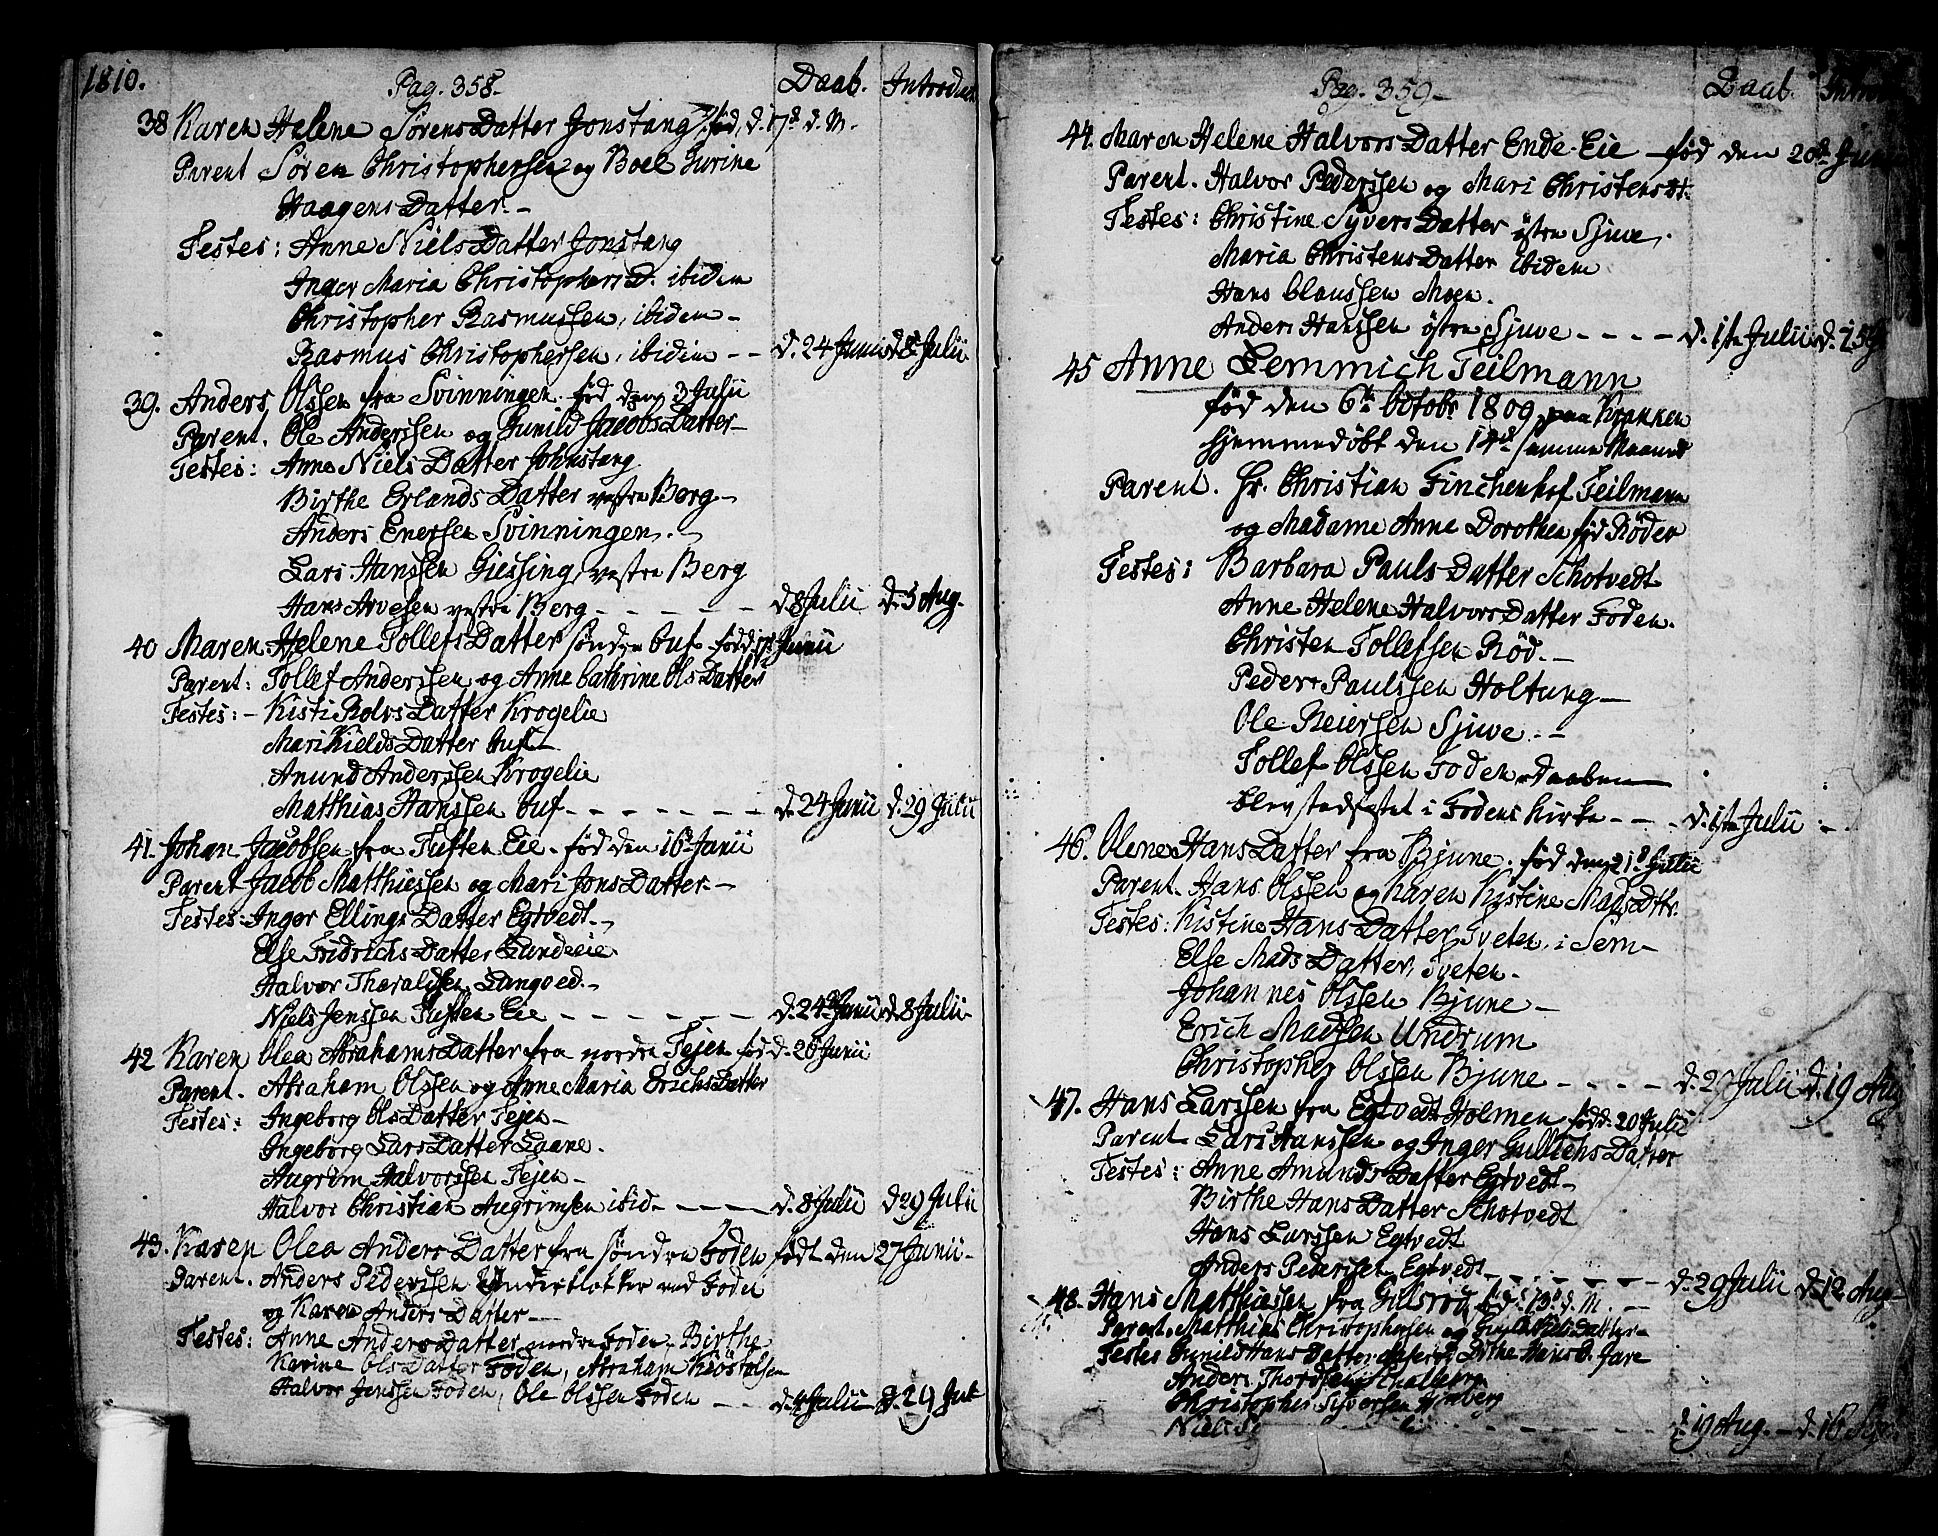 1810.
Pag. 358.
Daab. Introduct
38 Karen Helene SørensDatter Jonstang, fød, d. 17de d. M.
Parent Søren Christophersen og Boel Gurine
HaagensDatter.
Testes: Anne NielsDatter Jonstang
Inger Maria Christophers D. ibidem
Christopher Rasmussen, ibidem
Rasmus Christophersen, ibidem - - d. 24 Junii d. 8 Julii
39. Anders Olssen fra Svinningen fød den 3 Julii
Parent. Ole Anderssen og Gunild JacobsDatter
Testes: Anne NielsDatter Johnstang
Birthe ErlandsDatter vestre Berg
Anders Enersen Svinningen.
Lars Hanssen Giessing, vestre Berg
Hans Arvesen vestre Berg - - - - - d. 8 Julii d. 5 Aug.
40 Maren Helene TollefsDatter søndre Buf fød d. Junii
Parent: Tollef Anderssen og Anne Cathrine OlsDatter
Testes: Kisti RolvsDatter Krogelie
Mari KieldsDatter Buf
Anund Anderssen Krogelie
Matthias Hanssen Buf - - - - - - - d. 24 Junii d. 29 Julii
41. Johan Jacobsen fra Tuften Eie. fød den 16 Junii
Parent Jacob Matthiessen og Mari JonsDatter.
Testes: Inger EllingsDatter Egtvedt.
Else FridrichsDatter Lundeeie
Halvor Tharaldsen Langved.
Niels Jenssen Tuften Eie - - - - - - - d. 24 Junii d. 8 Julii
42 Karen Olea AbrahamsDatter fra nordre Fejen fød d. 26 Junii
Parent. Abraham Olssen og Anne Maria ErichsDatter
Testes: Ingeborg OlsDatter Fejen
Ingeborg LarsDatter Laane.
Augrim Halvorssen Fejen
Halvor Christian Augrimsen ibid - - - - d. 8 Julii d 29 Julii
43. Karen Olea AndersDatter fra søndre Foden født den 27 Junii
Parent. Anders Pederssen Underklokker ved Foden
og Karen AndersDatter
Testes: Anne AndersDatter nordre Foden, Birthe
Karine OlsDatter Foden, Abraham
Halvor Jenssen Foden, Ole Olssen Foden - - d. 4 Julii d. 29 Jul
Pag. 359
Daab.
44. Maren Helene HalvorsDatter Ende Eie fød den 20de Junii
Parent. Halvor Pederssen og Mari Christensdt.
Testes: Christine SyversDatter østre Sjuve,
Maria ChristensDatter ibidem
Hans Claussen Moen.
Anders Hanssen østre Sjuve - - - - d. 1ste Julii d.
45 Anne Lemmich Teilmann
fød den 6te Octobr 1809 paa Kranken
hjemmedøbt den 14de samme Maaned
Parent. Hr. Christian Finchenhof Teilmann
og Madame Anne Dorothea fød Røder
Testes: Barbara PaulsDatter Schotvedt
Anne Helene HalvorsDatter Foden.
Christen Tollefsen Rød.
Peder Paulssen Holtung
Ole Reiersen Sjuve.
Tollef Olssen Foden Daaben
blev stadfæstet i Fodens Kirke - - - d. 1ste Julii
46. Olene HansDatter fra Bjune. fød den 21de Julii
Parent. Hans Olssen og Karen Kistine MadsDttr.
Testes: Kistine HansDatter Tveten, i Sem
Else MadsDatter, Tveten
Johannes Olssen Bjune
Erich Madssen Undrum
Christopher Olssen Bjune - - - - d. 29 Julii d. 19 Aug
47. Hans Larssen fra Egtvedt Holmen fød d. 20 Julii
Parent Lars Hanssen og Inger GullichsDatter
Testes: Anne AmundsDatter Egtvedt
Birthe HansDatter Schotvedt
Hans Larssen Egtvedt
Anders Pederssen Egtvedt - - - - - - d. 29 Julii d. 12 Aug
48. Hans Matthiessen fra Gulsrød d. M.
Parent. Matthias Christophersen og NielsDatter
Testes Gunild HansDatter
Anders Thordsen
Christopher Syversen
Niels - - - - - d. 19 Aug. d. 16 Sep.